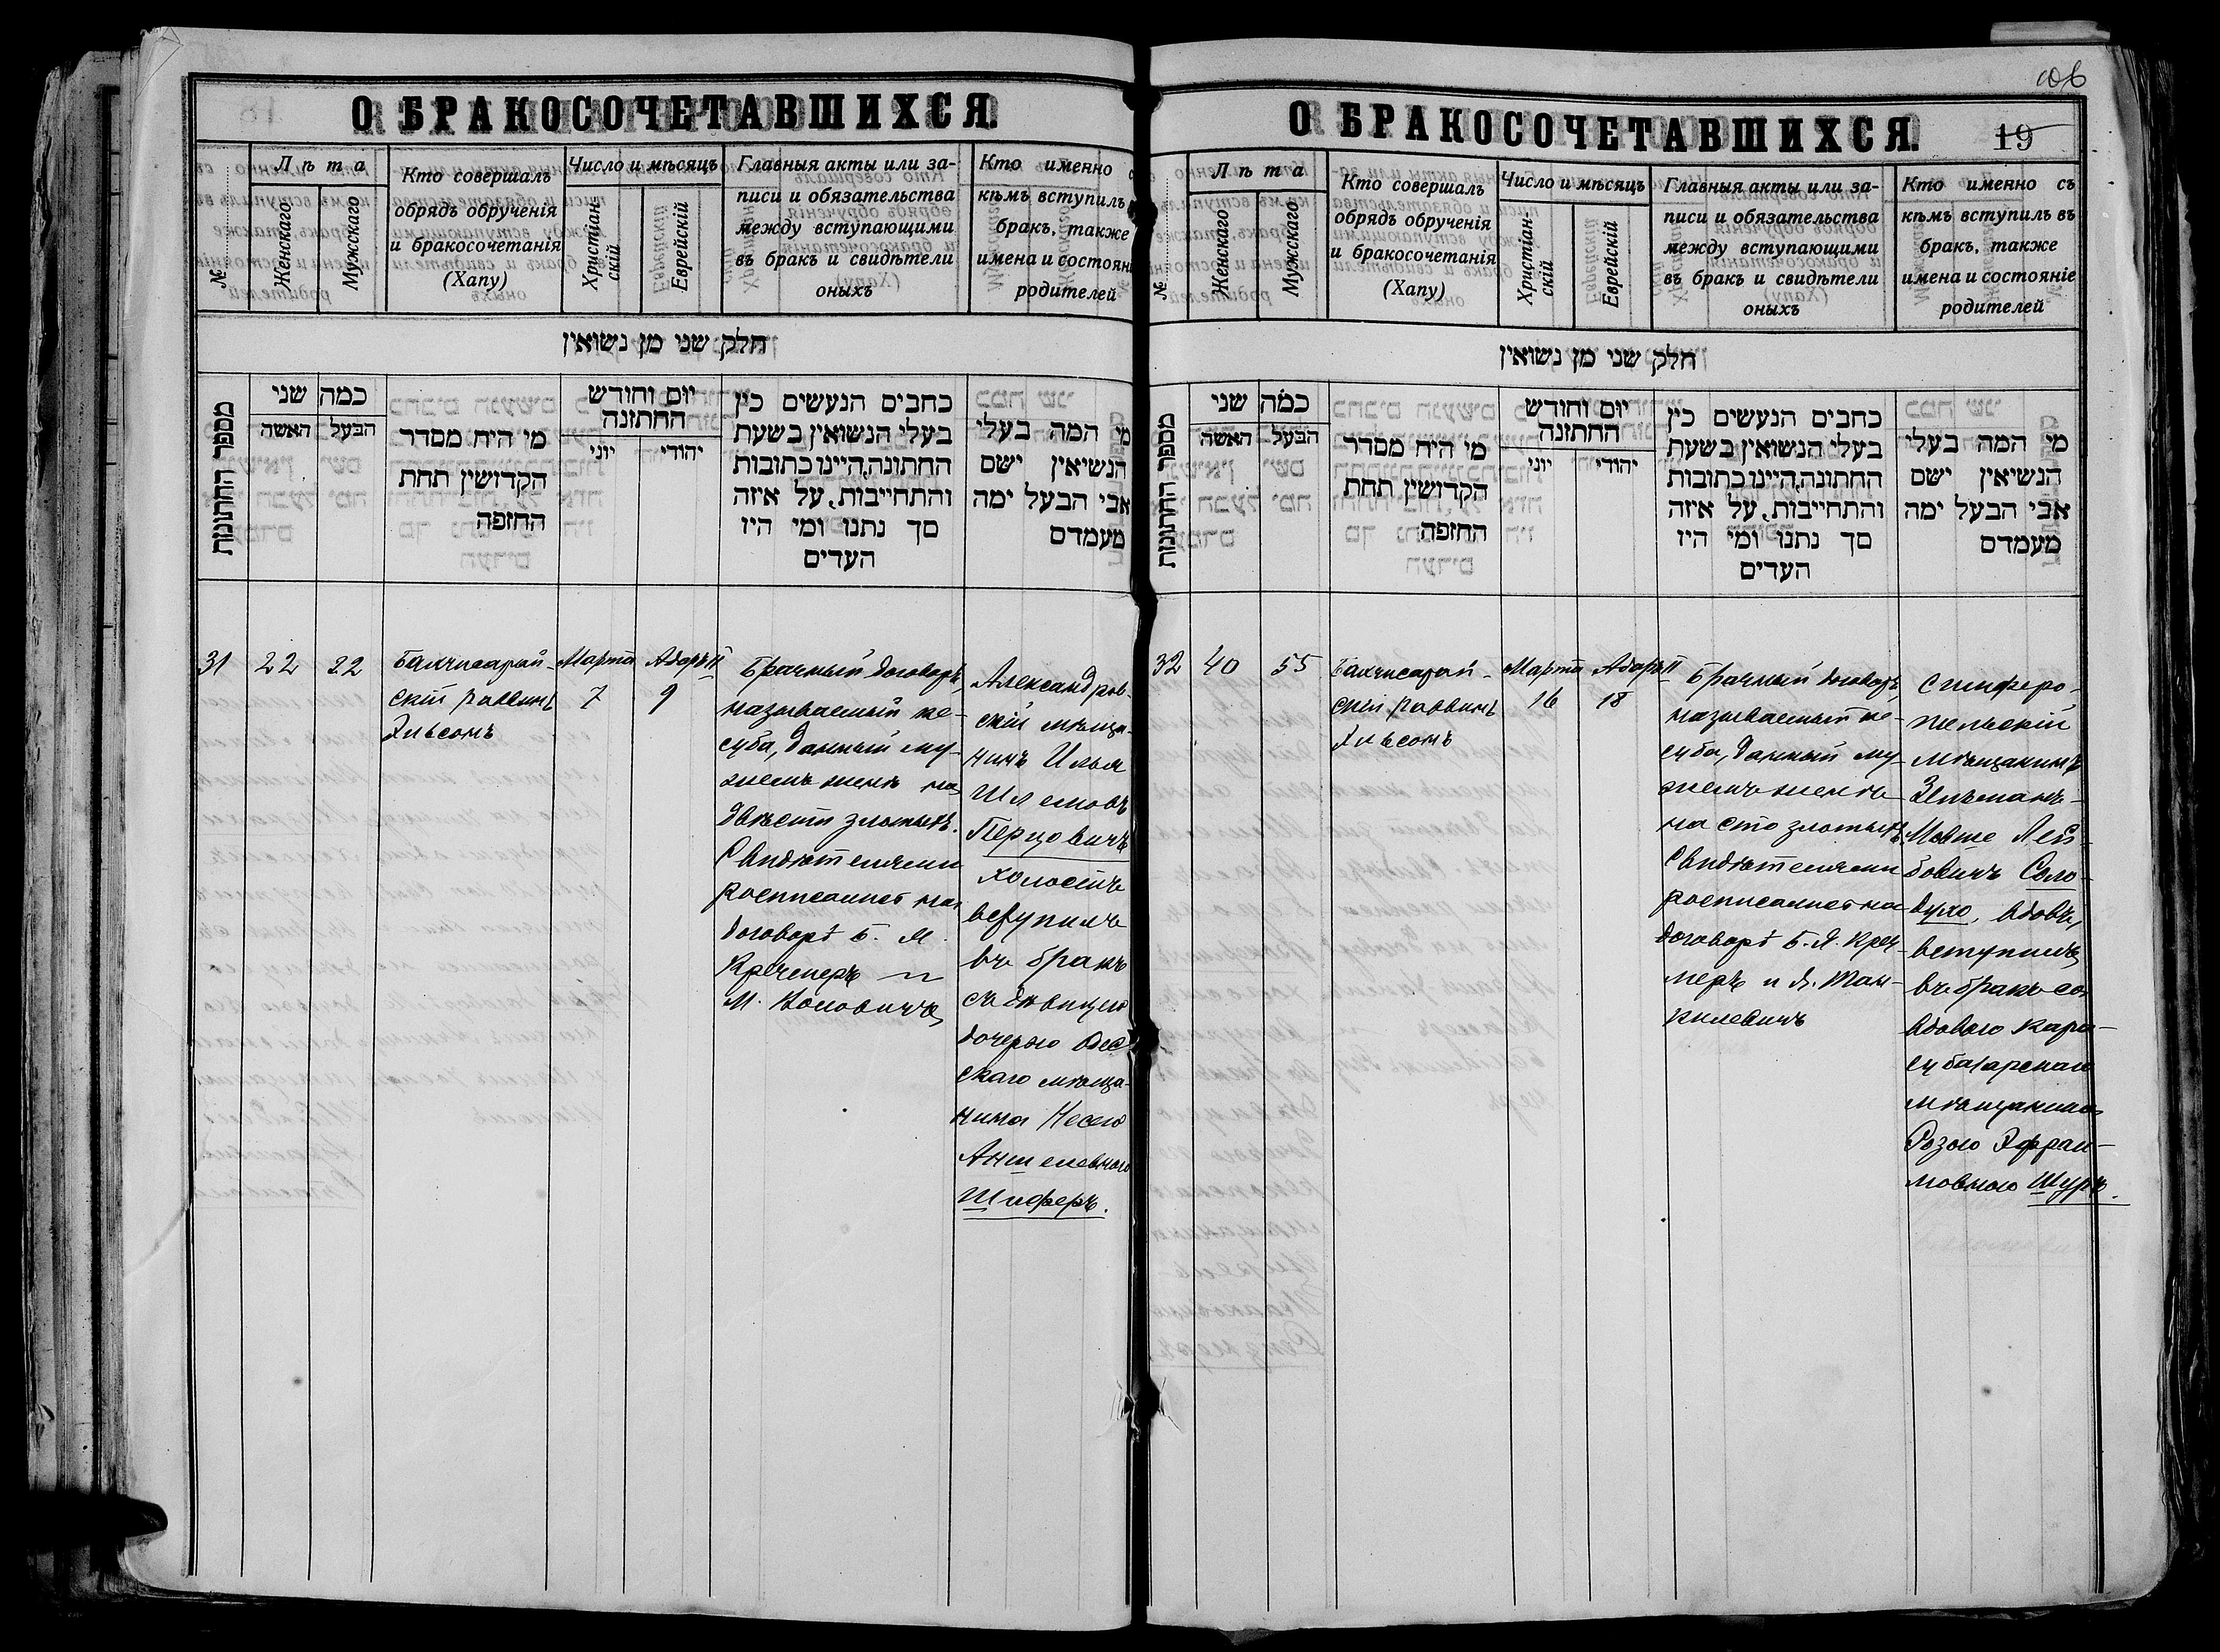 О БРАКОСОЧЕТАВШИХСЯ.
№
Лѣта
Женскаго
Мужскаго
Кто совершалъ
обрядъ обрученія
и бракосочетанія
(Хапу)
Число и мѣсяцъ
Христіан-
скій
Еврейскій
Главныя акты или за-
писи и обязательства
между вступающими
въ бракъ и свидѣтели
оныхъ
Кто именно
кѣмъ вступилъ
бракъ, также
имена и состоян
родителей
חלק שני מן נשואין
מספר החתונות
כמה שני
האשה
הבעל
מי היה מסדר
הקדושין תחת
החופה
יום וחודש
החתונה
יוני
יהודי
כתבים הנעשים בין
בעלי הנשואין בשעת
החתונה, היינו כתובות
והתחייבות, על איזה
סך נתנו ומי היו
העדים
מי המה בעלי
הנשיאין ישם
אבי הבעל ימה
מעמדם
31
22
22
Бахчисарай-
скій раввинъ
Эльсонъ
Марта
7
Адаръ II
9
Брачный договоръ,
называемый ке-
суба, данный му-
жемъ женѣ на
двѣсти злотыхъ.
Свидѣтелями
росписались на
договорѣ Б. Я.
Кречмеръ и
М. Коловичъ
Александров-
скій мѣща-
нинъ Илья
Шлемовъ
Перцовичъ
холостъ
вступилъ
въ бракъ
съ дѣвицею
дочерью Одес
скаго мѣща-
нина Несею
Аншелевною
Шиферъ.
106
О БРАКОСОЧЕТАВШИХСЯ.
19
№
Лѣта
Женскаго
Мужскаго
Кто совершалъ
обрядъ обрученія
и бракосочетанія
(Хапу)
Число и мѣсяцъ
Христіан-
скій
Еврейскій
Главныя акты или за-
писи и обязательства
между вступающими
въ бракъ и свидѣтели
оныхъ
Кто именно съ
кѣмъ вступилъ въ
бракъ, также
имена и состояніе
родителей
חלק שני מן נשואין
מספר החתונות
כמה שני
האשה
הבעל
מי היה מסדר
הקדושין תחת
החופה
יום וחודש
החתונה
יוני
יהודי
כתבים הנעשים בין
בעלי הנשואין בשעת
החתונה, היינו כתובות
והתחייבות, על איזה
סך נתנו ומי היו
העדים
מי המה בעלי
הנשיאין ישם
אבי הבעל ימה
מעמדם
32
40
55
Бахчисарай-
скій раввинъ
Эльсонъ
Марта
16
Адаръ II
18
Брачный договоръ,
называемый ке-
суба, данный му-
жемъ женѣ
на сто злотыхъ
Свидѣтелями
росписались на
договорѣ Б. Я. Креч-
меръ и Я. Ман-
килевичъ
Симферо-
польскій
мѣщанинъ
Зельманъ-
Мовше Лей-
бовичъ Соло-
духо, вдовъ,
вступилъ
въ бракъ со
вдовою Кара-
субазарскаго
мѣщанина
Розою Эфраи-
мовною Шуръ.